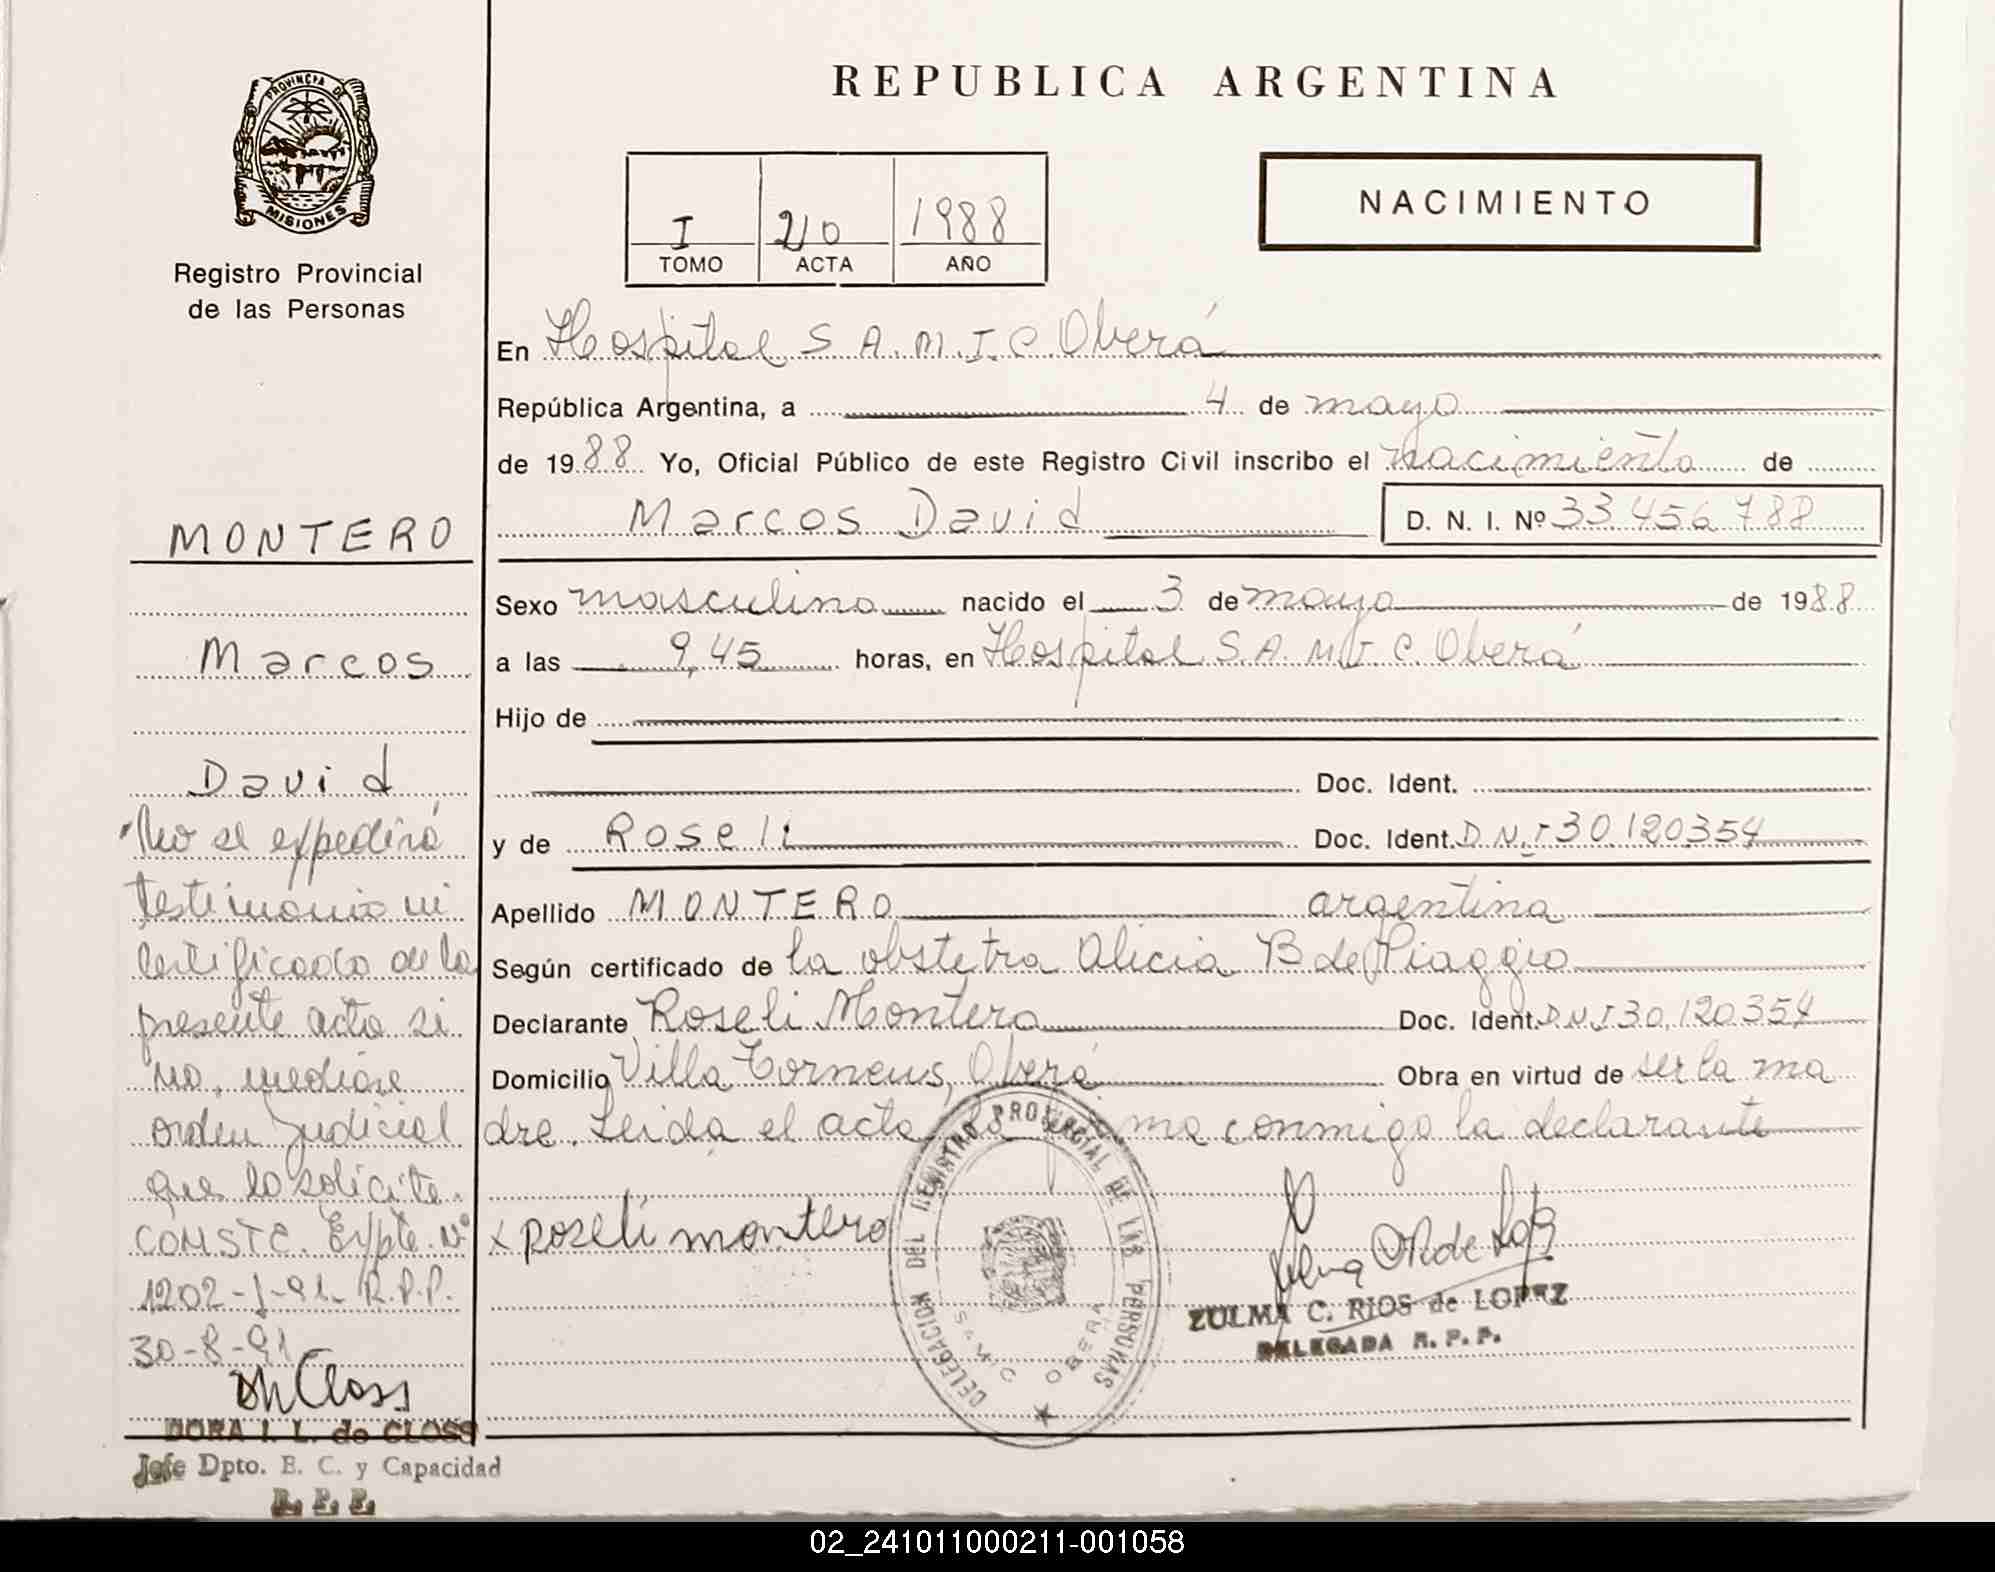 PROVINCIA DE
MISIONES
Registro Provincial
de las Personas
REPUBLICA ARGENTINA
I 210 1988
TOMO ACTA AÑO
NACIMIENTO
En Hospital S.A.M.I.C. Oberá
República Argentina, a 4 de mayo
de 1988 Yo, Oficial Público de este Registro Civil inscribo el nacimiento de
Marcos David D. N. I. Nº 33.456.788
Sexo masculino nacido el 3 de mayo de 1988
a las 9,45 horas, en Hospital S.A.M.I.C. Oberá
Hijo de
Doc. Ident.
y de Roseli Doc. Ident. D.N.I 30.120354
Apellido MONTERO argentina
Según certificado de la obstetra Alicia B de Piaggio
Declarante Roseli Montero Doc. Ident. D N I 30.120.354
Domicilio Villa Oberá Obra en virtud de ser la ma
dre. Leida el acta la firma conmigo la declarante
x Roseli montero
DELEGACION DEL REGISTRO PROVINCIAL DE LAS PERSONAS
SAMIC OBERA
ZULMA C. RIOS de LOPEZ
DELEGADA R. P. P.
MONTERO
Marcos
David
No se expedirá
testimonio ni
certificado de la
presente acta si
no mediare
orden Judicial
que lo solicite.
CONSTE. Expte. Nº
1202-J-91- R.P.P.
30-8-91
DORA I. L. de CLOSS
Jefe Dpto. E. C. y Capacidad
R. P. P.
02_241011000211-001058